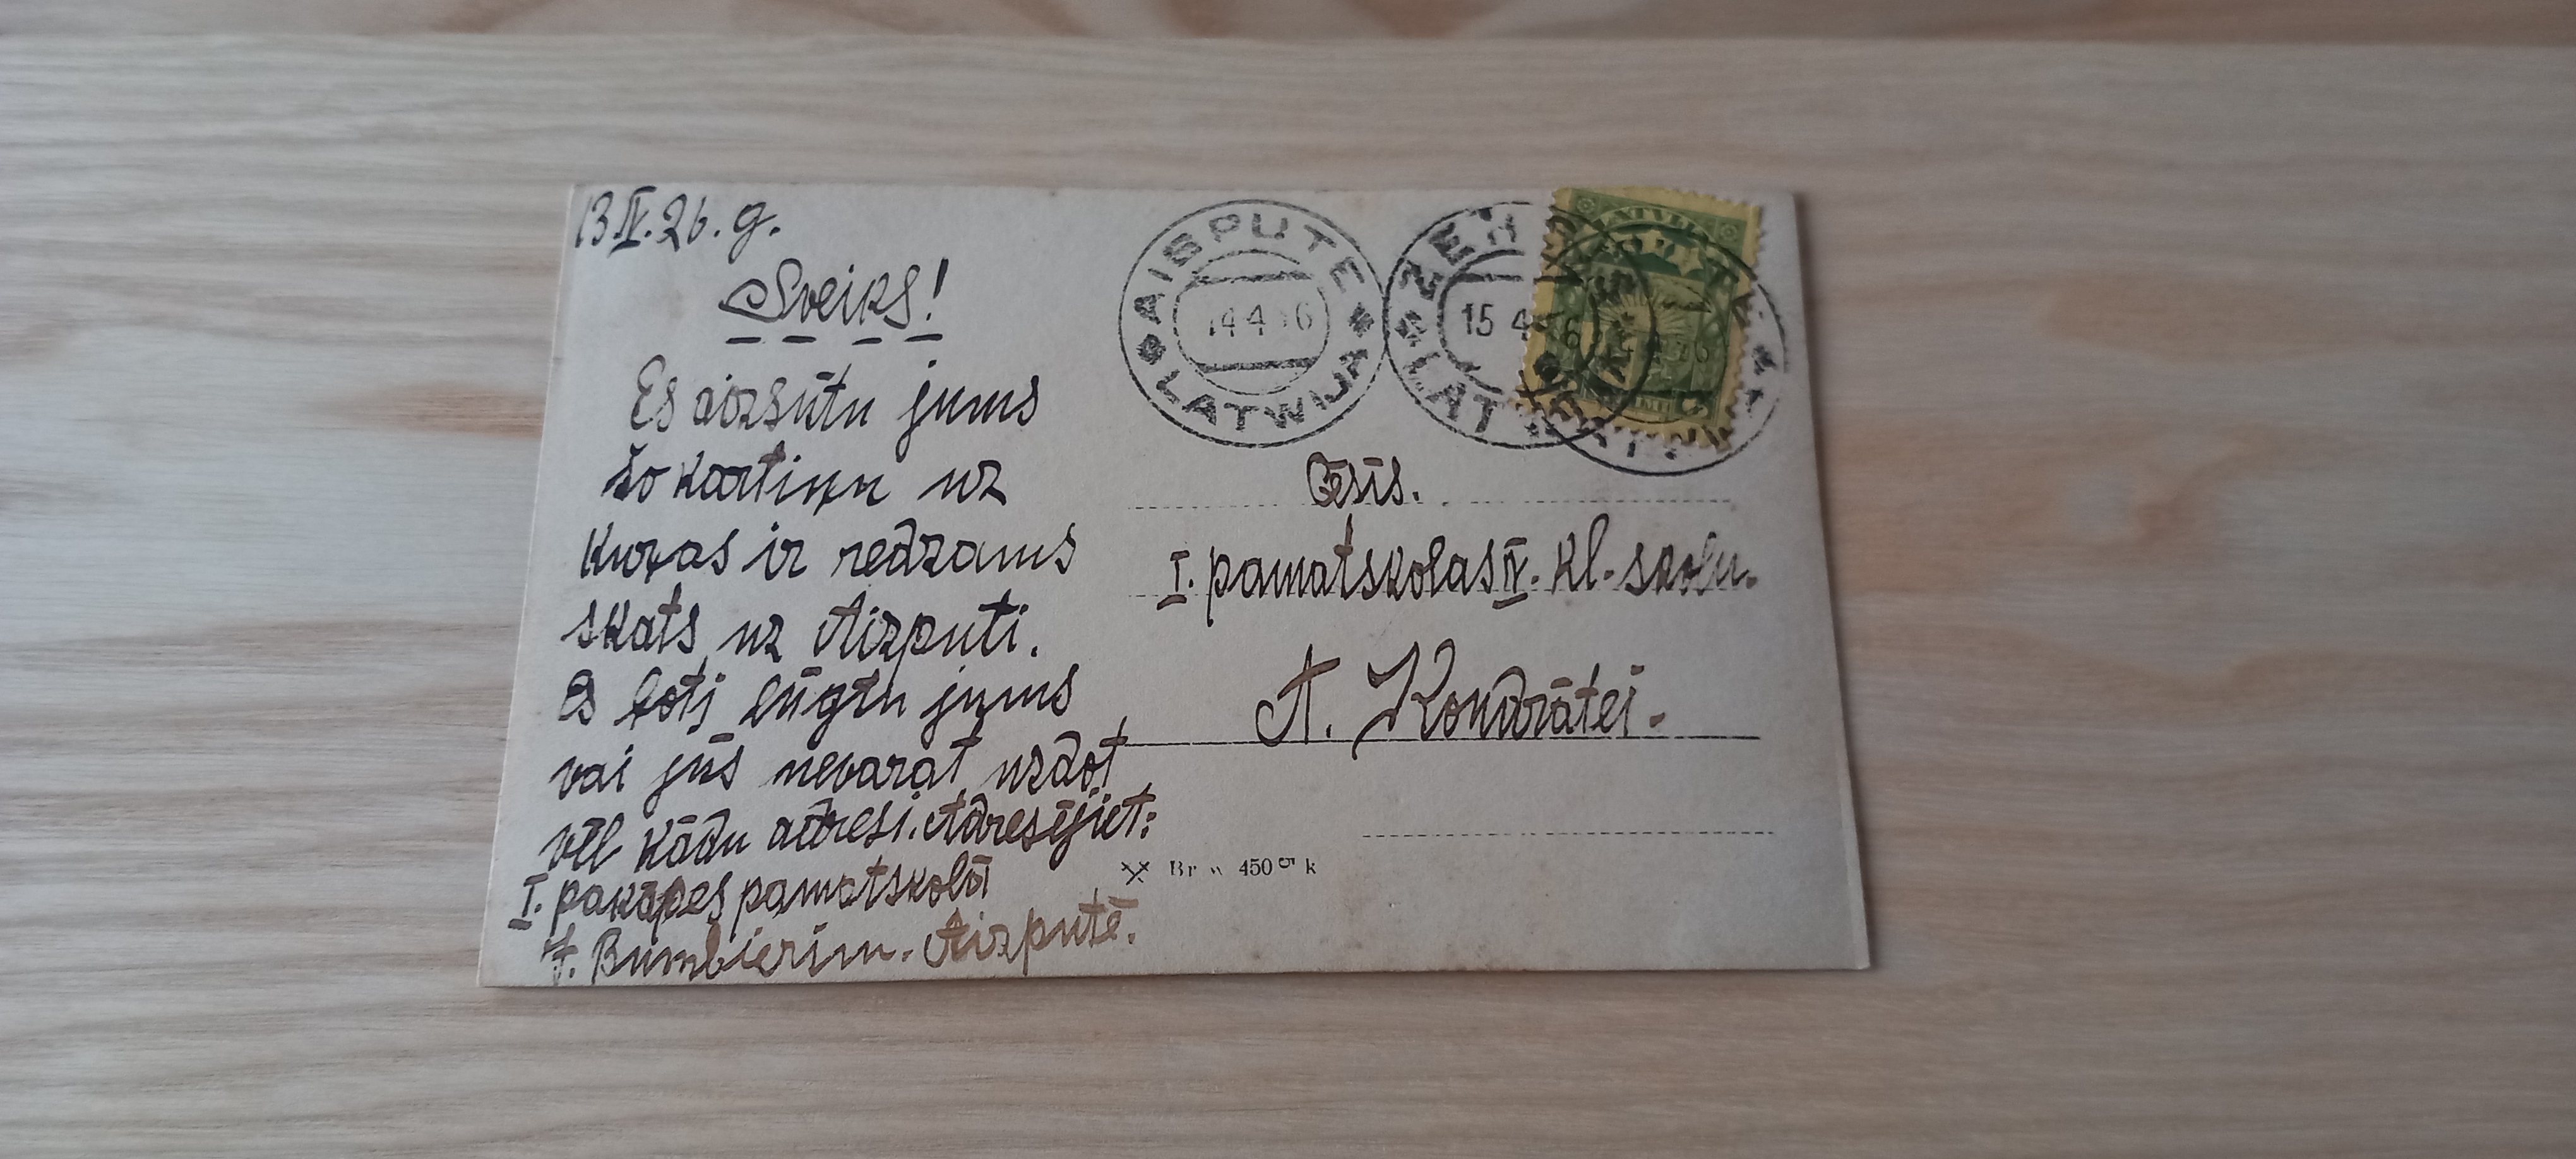 13 IV. 26. g.
Sveiks!
Es aizsūtu jums
šo kartiņu uz
kuŗas ir redzams
skats uz Aizputi.
Es ļoti lūgtu jums
vai jūs nevarat uzdot
vēl kādu adresi. Adresējiet:
I. pakāpes pamatskolā
Bumbierim. Aizputē.
AISPUTE
14 4
LATWIJA
15 4
Cēsīs.
I. pamatskolas IV. kl. skoln.
A. Kondrātei.
Br 450 k